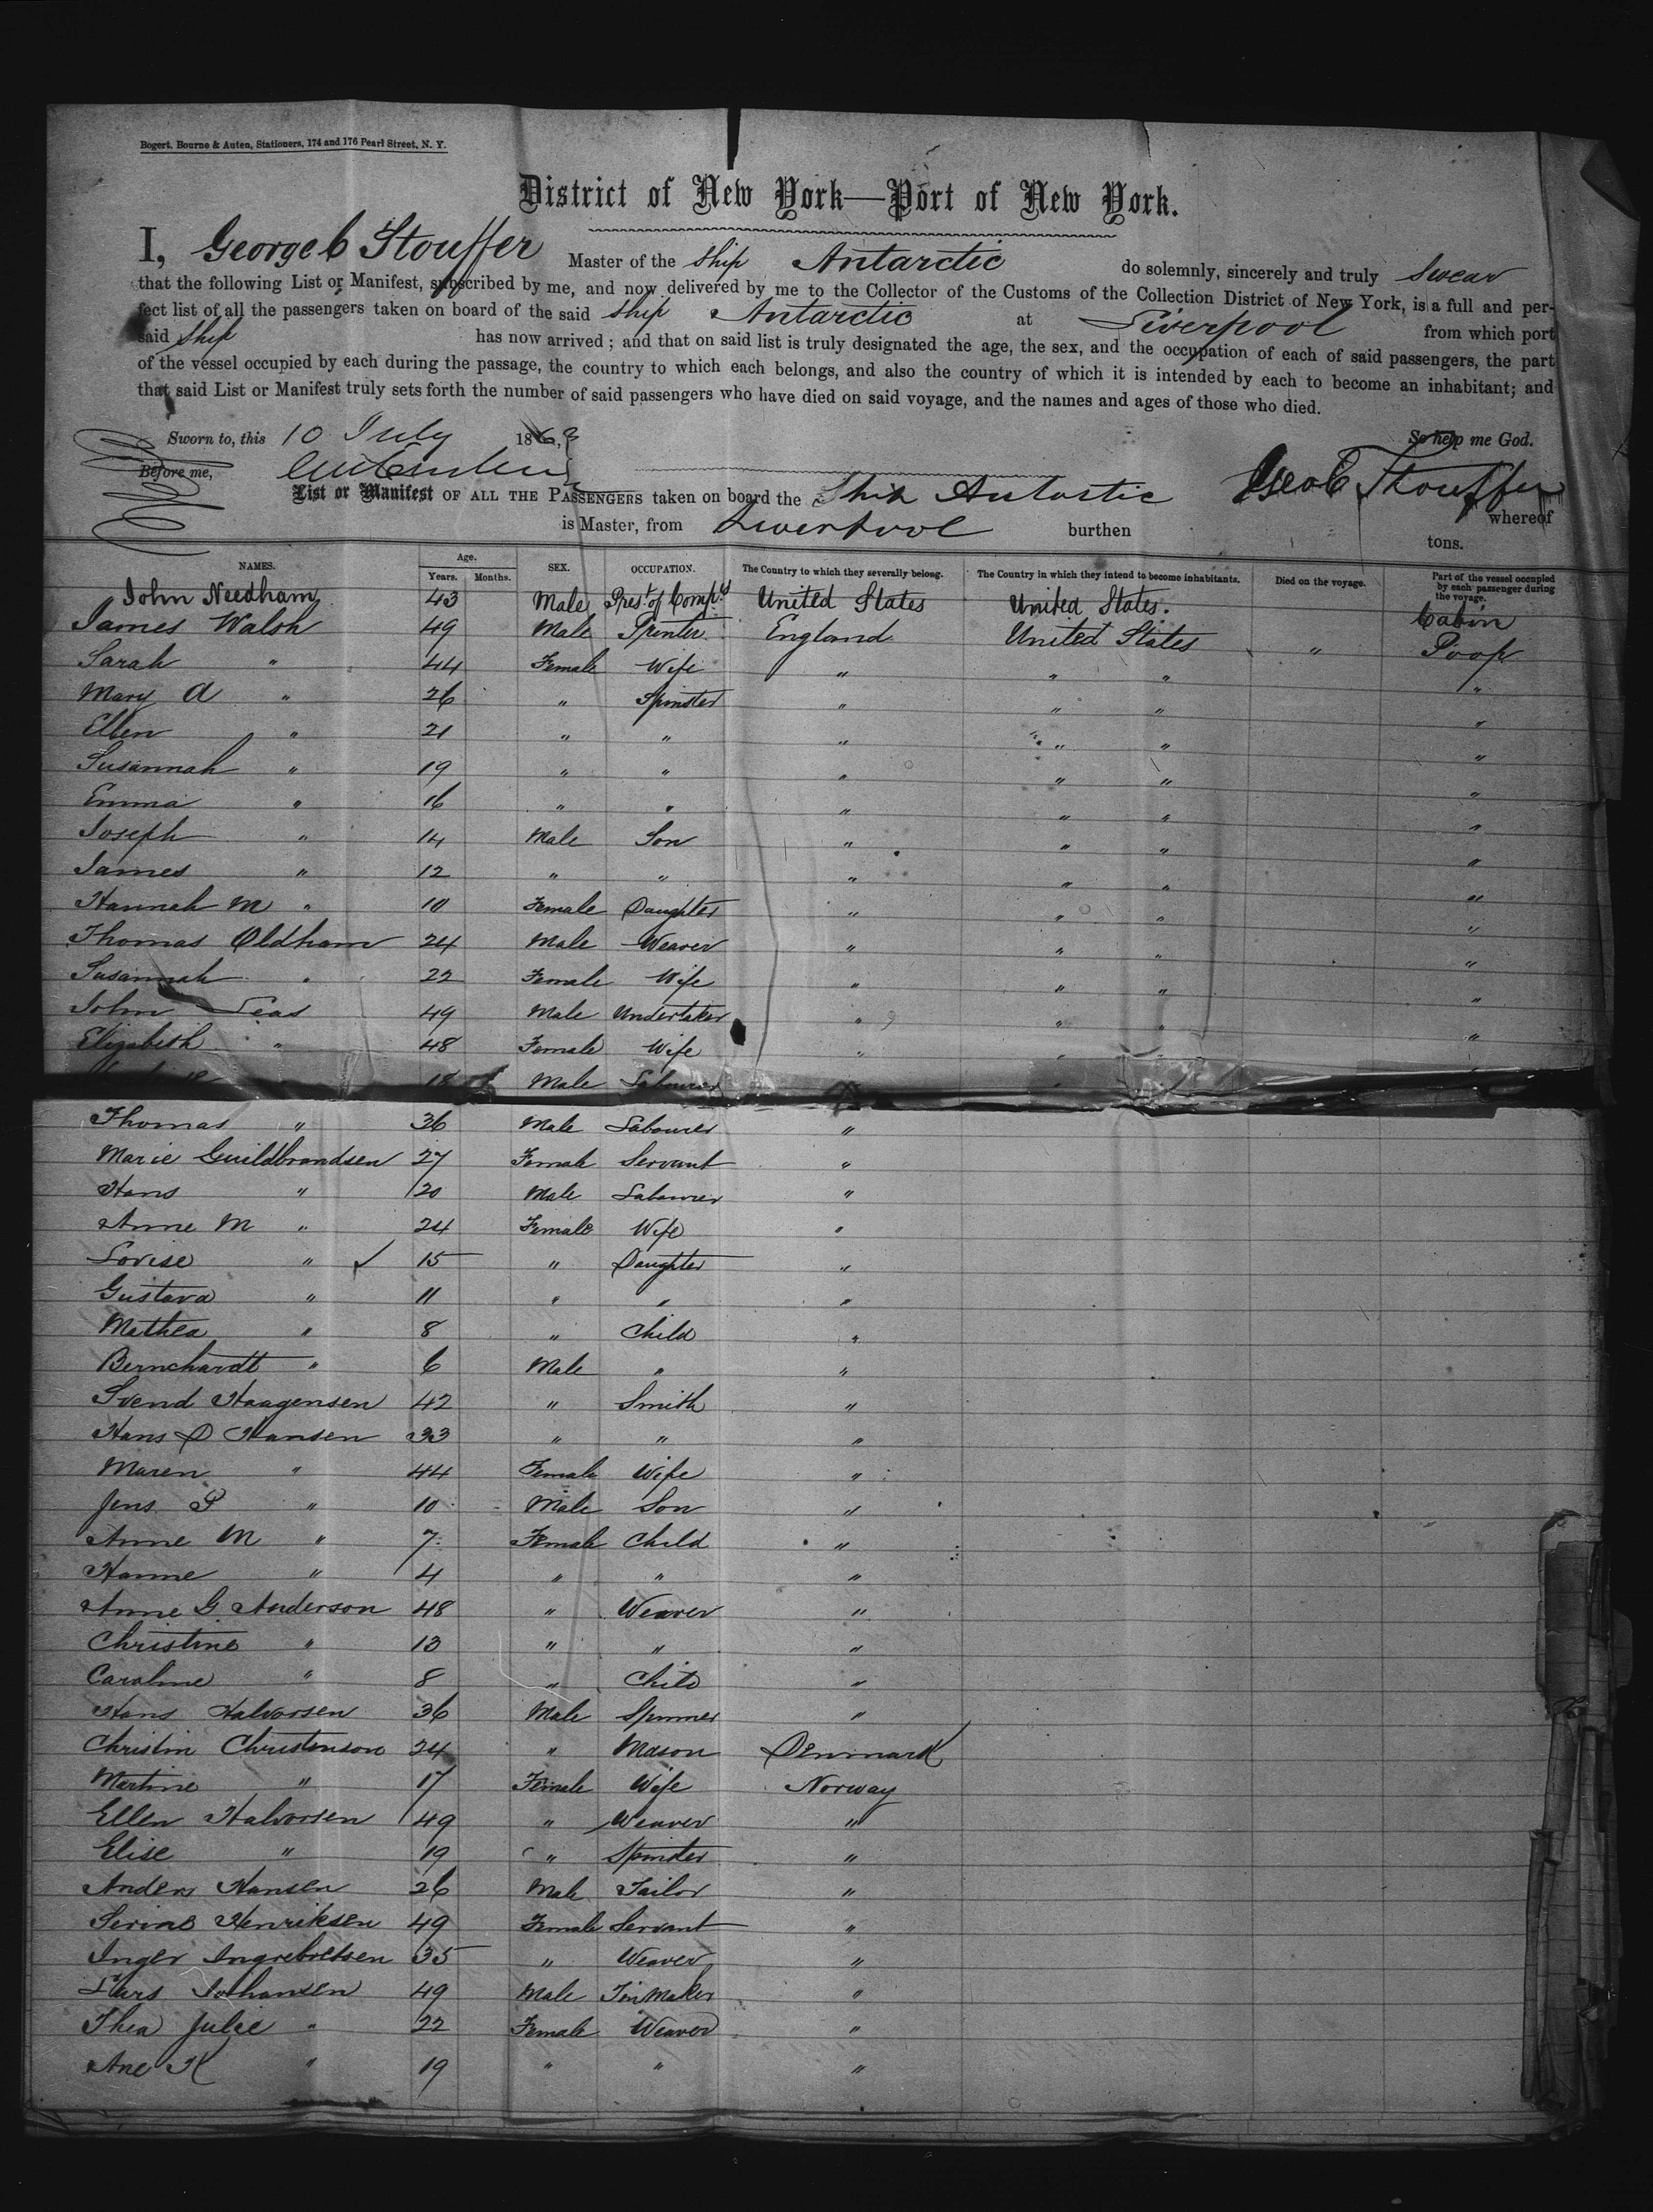 Bogert, Bourne & Auten, Stationers, 174 and 176 Pearl Street, N. Y.
District of New York—Port of New York.
I, George C Stouffer Master of the Ship Antarctic do solemnly, sincerely and truly swear
that the following List or Manifest, subscribed by me, and now delivered by me to the Collector of the Customs of the Collection District of New York, is a full and per-
fect list of all the passengers taken on board of the said Ship Antarctic at Liverpool from which port
said Ship has now arrived; and that on said list is truly designated the age, the sex, and the occupation of each of said passengers, the part
of the vessel occupied by each during the passage, the country to which each belongs, and also the country of which it is intended by each to become an inhabitant; and
that said List or Manifest truly sets forth the number of said passengers who have died on said voyage, and the names and ages of those who died.
Sworn to, this 10 July 1863, So help me God.
Before me, Geo C Stouffer
List or Manifest OF ALL THE PASSENGERS taken on board the Ship Antartic whereof
is Master, from Liverpool burthen tons.
NAMES. Age. Years. Months. SEX. OCCUPATION. The Country to which they severally belong. The Country in which they intend to become inhabitants. Died on the voyage. Part of the vessel occupied by each passenger during the voyage.
John Needham 43 Male Prest. of Compy United States United States. Cabin
James Walsh 49 Male Printer England United States " Poop
Sarah " 44 Female Wife " " " "
Mary A " 26 " Spinster " " " "
Ellen " 21 " " " " " "
Susannah " 19 " " " " " "
Emma " 16 " " " " " "
Joseph " 14 Male Son " " " "
James " 12 " " " " " "
Hannah M " 10 Female Daughter " " " "
Thomas Oldham 24 Male Weaver " " " "
Susannah " 22 Female Wife " " " "
John Leas 49 Male Undertaker " " " "
Elizabeth " 48 Female Wife " " " "
18 Male Labourer
Thomas " 36 Male Labourer "
Marie Guildbrandsen 27 Female Servant "
Hans " 20 Male Labourer "
Anne M " 24 Female Wife "
Lovise " 15 " Daughter "
Gustava " 11 " " "
Mathea " 8 " Child "
Bernchardt " 6 Male " "
Svend Haagensen 42 " Smith "
Hans D Hansen 33 " " "
Maren " 44 Female Wife "
Jens P " 10 Male Son "
Anne M " 7 Female Child "
Hanne " 4 " " "
Anne G Anderson 48 " Weaver "
Christine " 13 " " "
Caroline " 8 " Child "
Hans Halvorsen 36 Male Spinner "
Christin Christenson 24 " Mason Denmark
Martine " 17 Female Wife Norway
Ellen Halvorsen 49 " Weaver "
Elise " 19 " Spinster "
Anders Hansen 26 Male Tailor "
Serine Henriksen 49 Female Servant "
Inger Ingrebretsen 35 " Weaver "
Lars Johansen 49 Male Tin Maker "
Thea Julie " 22 Female Weaver "
Ane K " 19 " " "